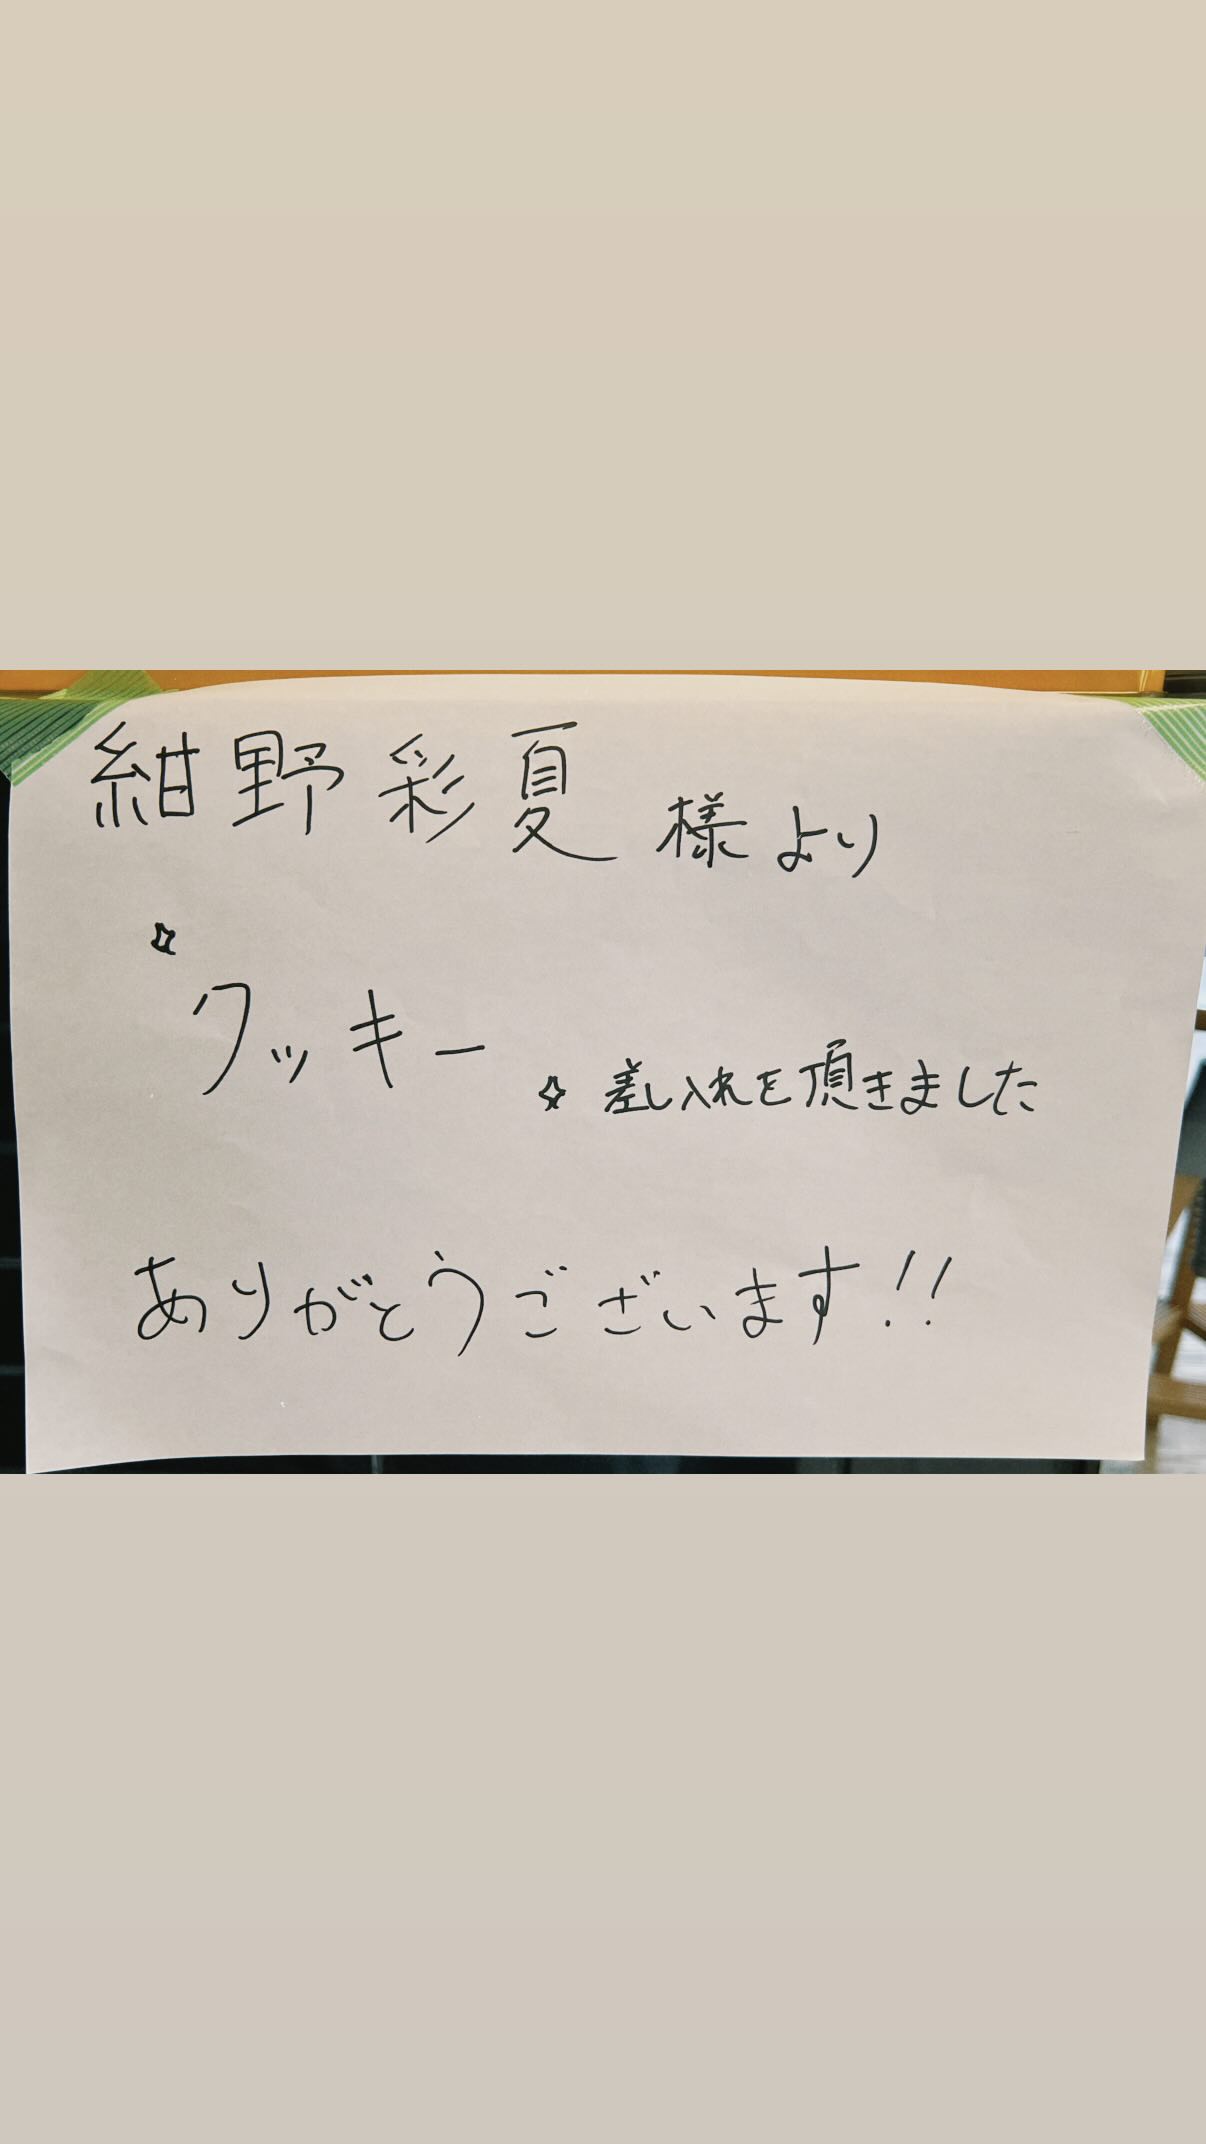 紺野彩夏 様より
☆
クッキー
☆ 差し入れを頂きました
ありがとうございます!!